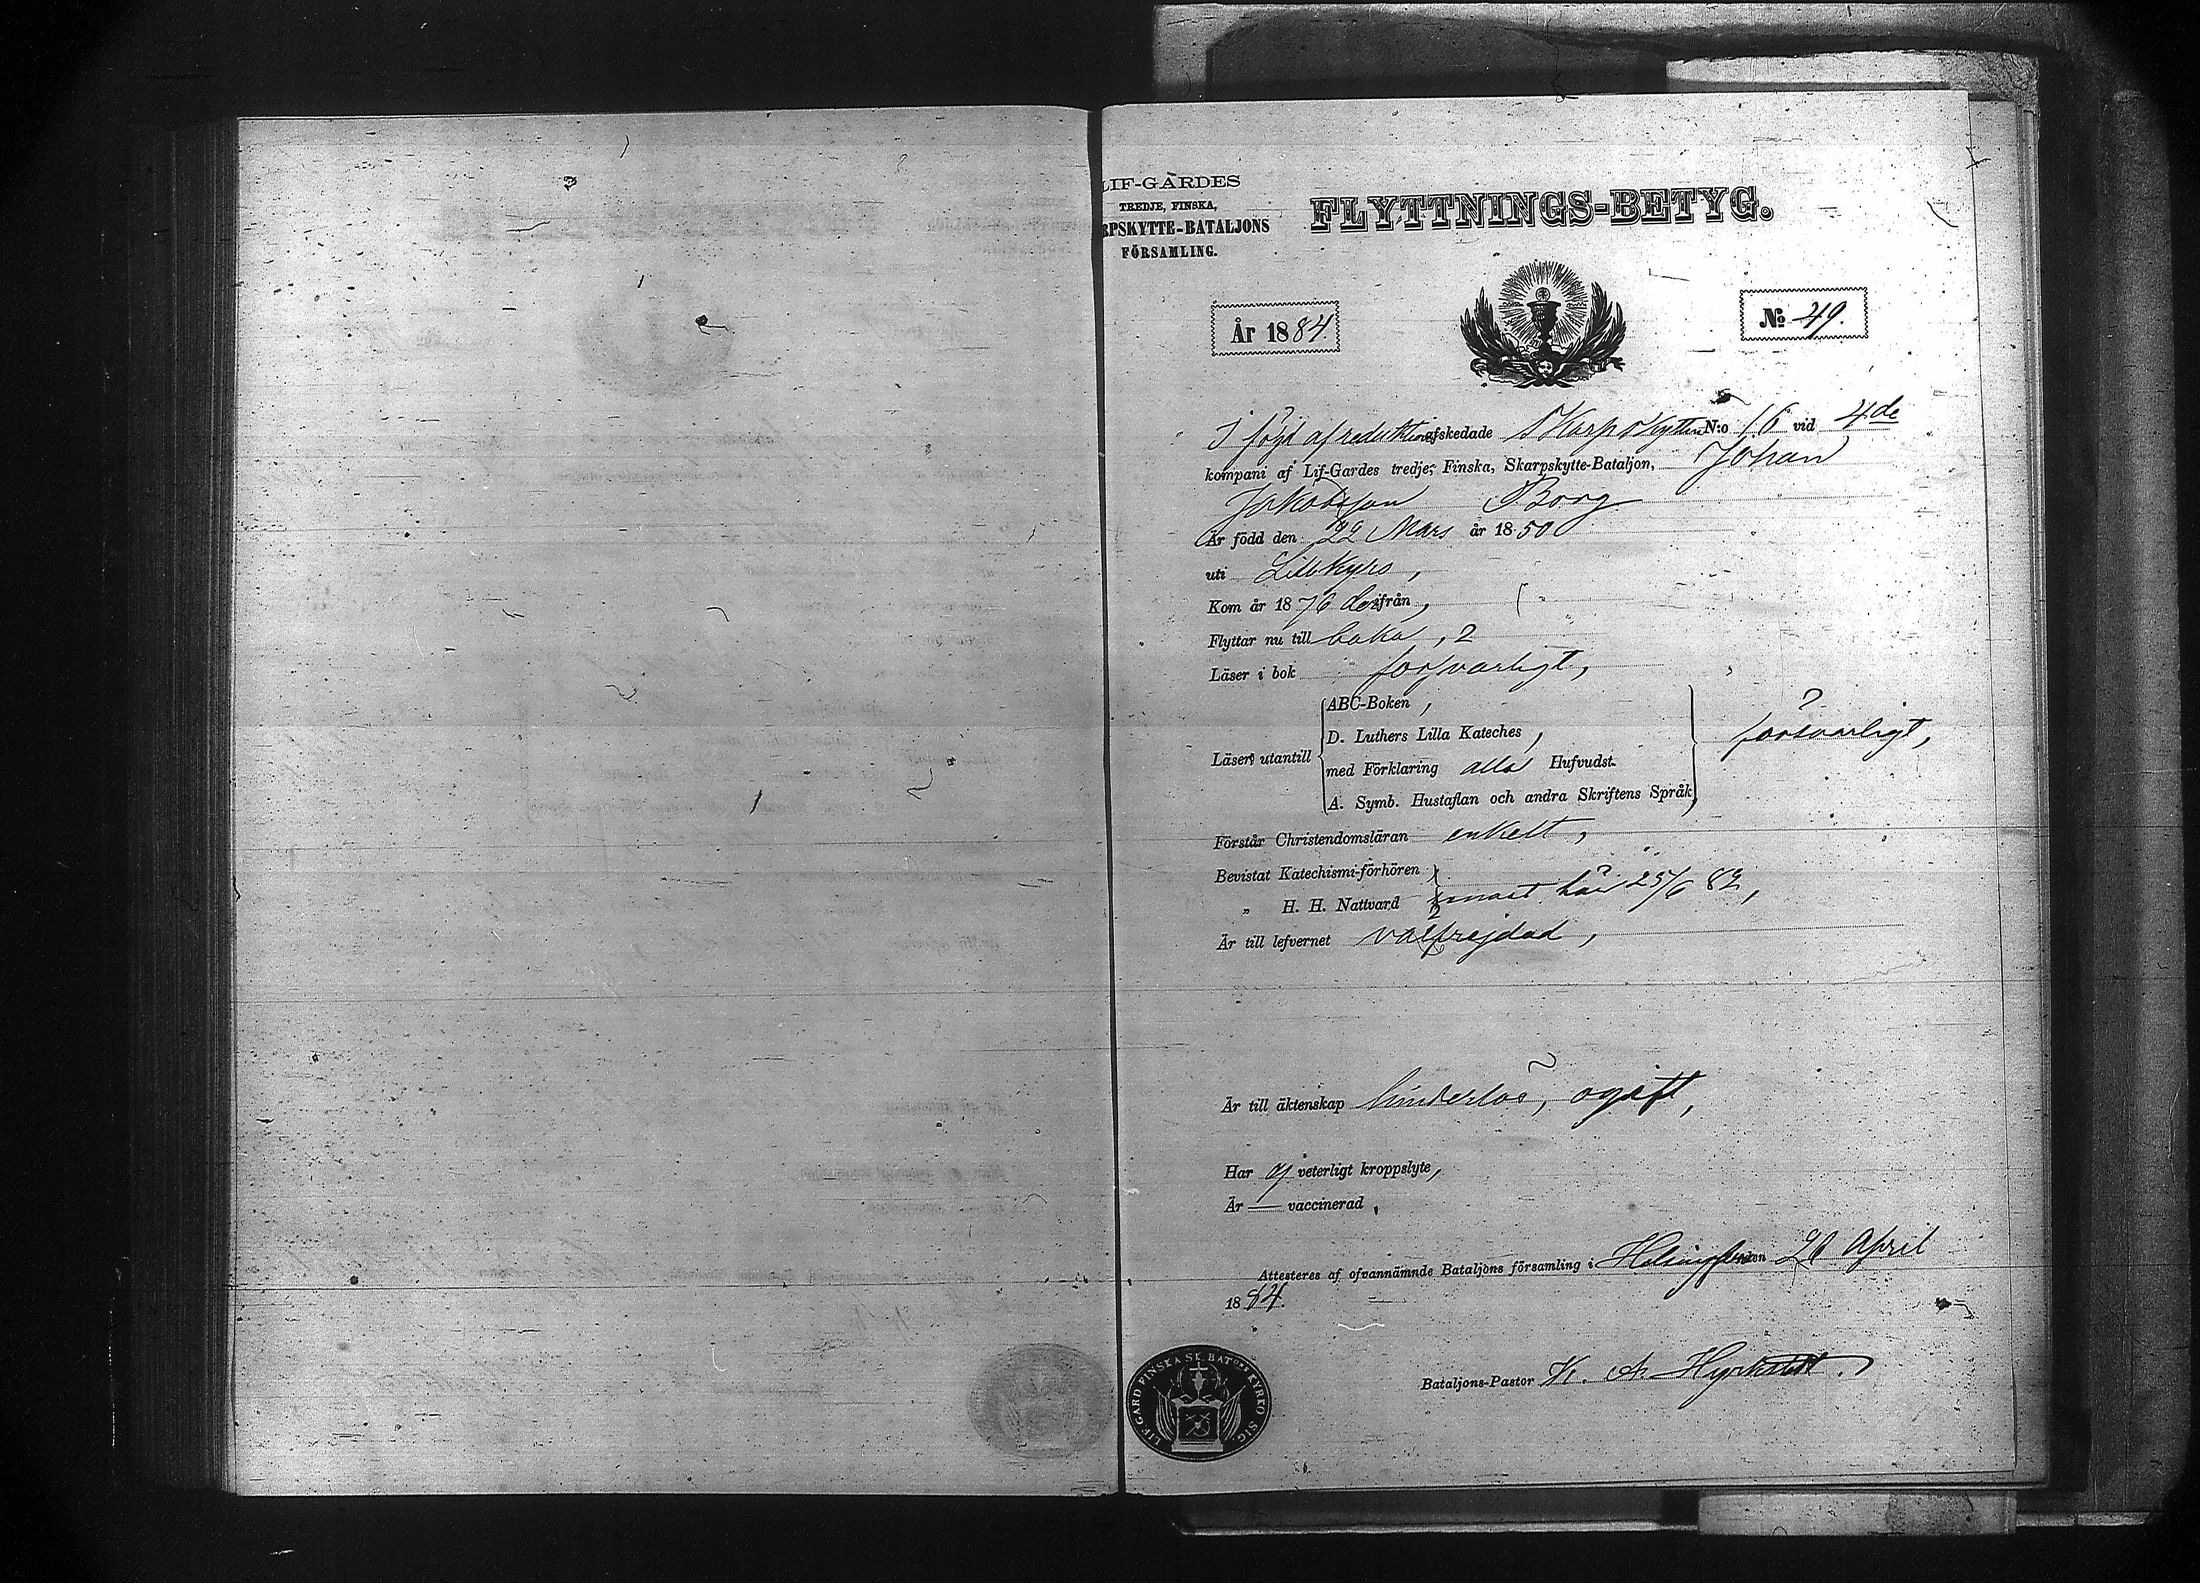 LIF-GARDES
TREDJE, FINSKA,
RPSKYTTE-BATALJONS
FÖRSAMLING.
FLYTTNINGS-BETYG.
År 1884.
No 49.
I följd af reduktion afskedade Skarpskytten N:o 16 vid 4de
kompani af Lif-Gardes tredje, Finska, Skarpskytte-Bataljon, Johan
Jakobsson Borg
Är född den 22 Mars år 1850
uti Lillkyro,
Kom år 1876 derifrån,
Flyttar nu till baka, 2
Läser i bok försvarligt,
ABC-Boken,
D. Luthers Lilla Kateches,
Läser utantill med Förklaring alla Hufvudst. försvarligt,
A. Symb. Hustaflan och andra Skriftens Språk,
Förstår Christendomsläran enkelt,
Bevistat Katechismi-förhören
„ H. H. Nattvard senast här 25/6 82,
Är till lefvernet välfrejdad,
Är till äktenskap hinderlös, ogift,
Har ej veterligt kroppslyte,
Är — vaccinerad,
Attesteres af ofvannämnde Bataljons församling i Helsingfors den 26 April
1884.
Bataljons-Pastor K. A. Hyrkstedt.
LIF. GARD FINSKA SK. BATONS KYRKO SIG.